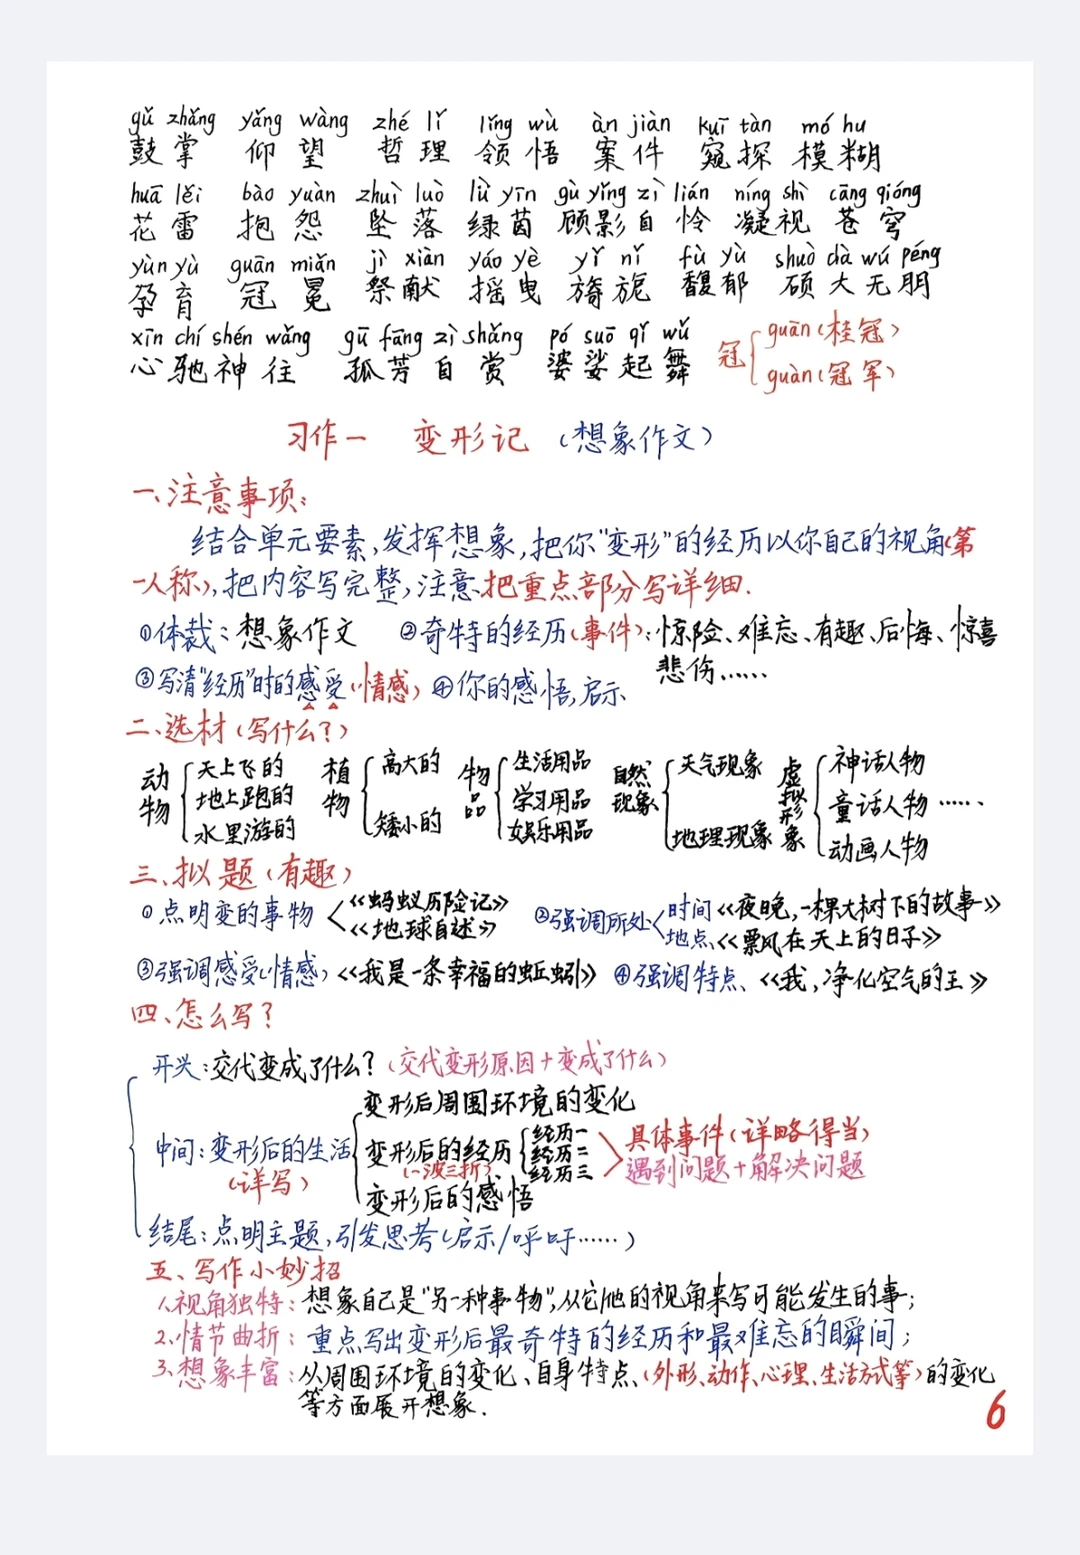 gǔ zhǎng yǎng wàng zhé lǐ lǐng wù àn jiàn kuī tàn mó hu
鼓掌 仰望 哲理 领悟 案件 窥探 模糊
huā lěi bào yuàn zhuì luò lǜ yīn gù yǐng zì lián níng shì cāng qióng
花雷 抱怨 坠落 绿茵 顾影自怜 凝视 苍穹
yùn yù guān miǎn jì xiàn yáo yè yǐ nǐ fù yù shuò dà wú péng
孕育 冠冕 祭献 摇曳 旖旎 馥郁 硕大无朋
xīn chí shén wǎng gū fāng zì shǎng pó suō qǐ wǔ
心驰神往 孤芳自赏 婆娑起舞 冠 guān(桂冠)
guàn(冠军)
习作一 变形记 (想象作文)
一、注意事项:
结合单元要素,发挥想象,把你"变形"的经历以你自己的视角(第
一人称),把内容写完整,注意把重点部分写详细.
①体裁:想象作文 ②奇特的经历(事件):惊险、难忘、有趣、后悔、惊喜
悲伤……
③写清"经历"时的感受(情感) ④你的感悟,启示
二、选材(写什么?)
动物 天上飞的 地上跑的 水里游的
植物 高大的 矮小的
物品 生活用品 学习用品 娱乐用品
自然现象 天气现象 地理现象
虚拟形象 神话人物 童话人物…… 动画人物
三、拟题(有趣)
①点明变的事物 《蚂蚁历险记》 《地球自述》
②强调所处 时间《夜晚,一棵大树下的故事》 地点《飘在天上的日子》
③强调感受(情感)《我是一条幸福的蚯蚓》 ④强调特点、《我,净化空气的王》
四、怎么写?
开头:交代变成了什么?(交代变形原因+变成了什么)
中间:变形后的生活
(详写)
变形后周围环境的变化
变形后的经历 经历一 经历二 经历三
(一波三折)
具体事件(详略得当)
遇到问题+解决问题
变形后的感悟
结尾:点明主题,引发思考(启示/呼吁……)
五、写作小妙招
1.视角独特:想象自己是"另一种事物",从它/他的视角来写可能发生的事;
2.情节曲折:重点写出变形后最奇特的经历和最难忘的瞬间;
3.想象丰富:从周围环境的变化、自身特点、(外形、动作、心理、生活方式等)的变化
等方面展开想象.
6